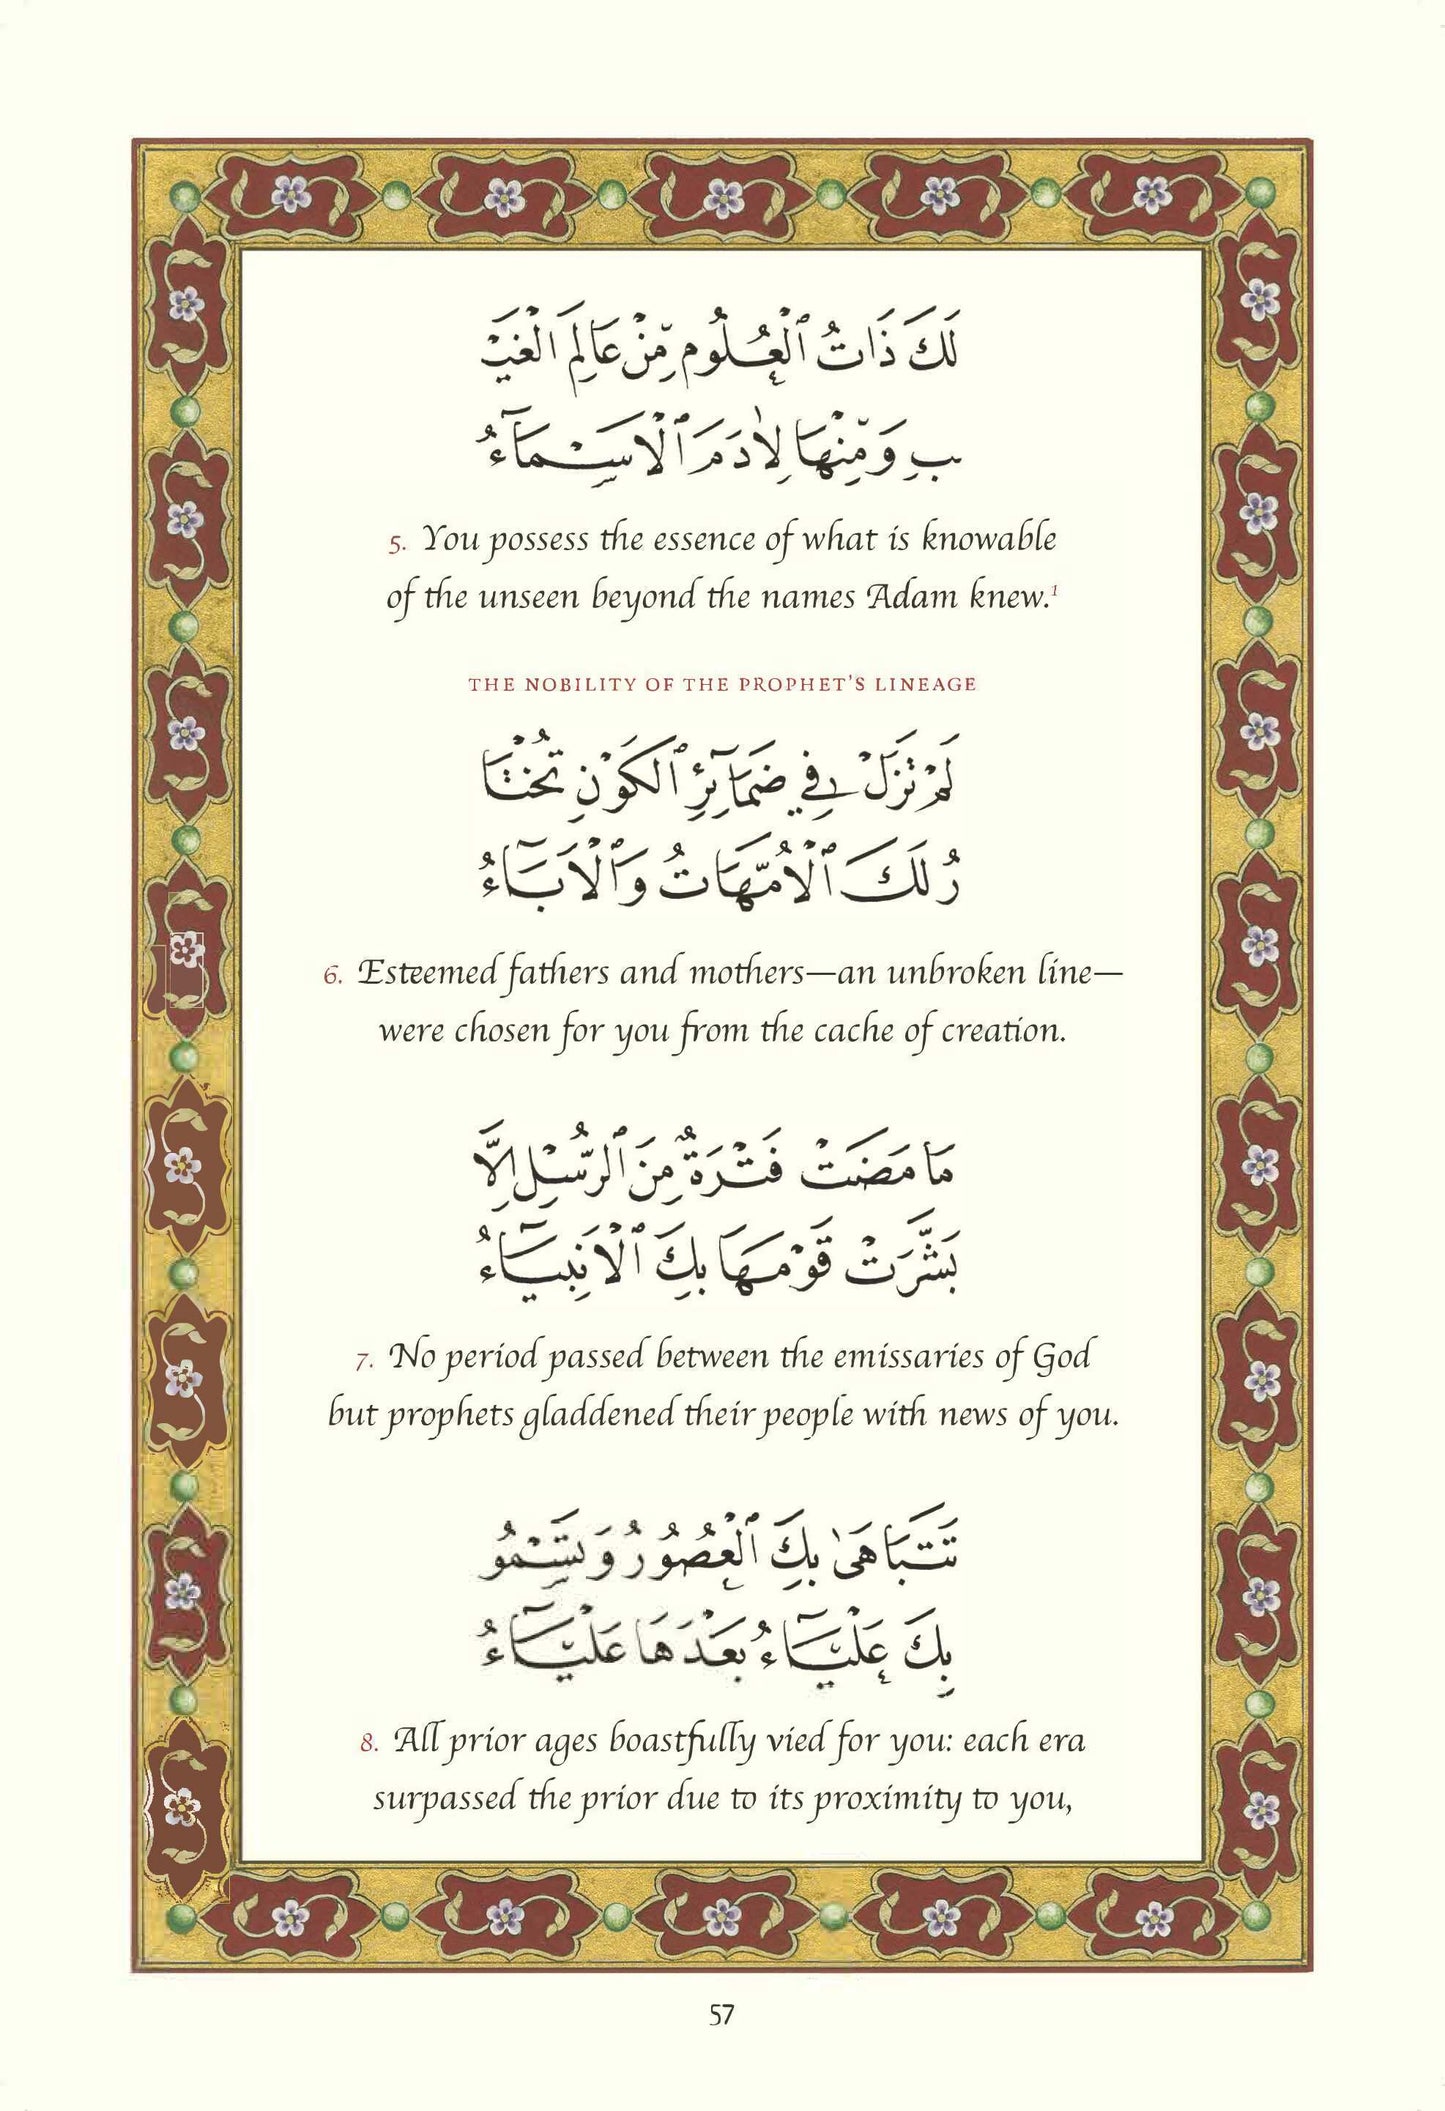 لَكَ ذَاتُ ٱلْعُلُومِ مِّنْ عَالِمِ الْغَيْـ
ـبِ وَمِّنْهَا لِاٰدَمَ ٱلْاَسْمَآءُ
5. You possess the essence of what is knowable
of the unseen beyond the names Adam knew.¹
THE NOBILITY OF THE PROPHET'S LINEAGE
لَمْ تَزَلْ فِي ضَمَآئِرِ ٱلْكَوْنِ تُخْتَا
رُ لَكَ ٱلْاُمَّهَاتُ وَٱلْاٰبَآءُ
6. Esteemed fathers and mothers—an unbroken line—
were chosen for you from the cache of creation.
مَا مَضَتْ فَتْرَةٌ مِنَ ٱلرُّسْلِ اِلَّا
بَشَّرَتْ قَوْمَهَا بِكَ ٱلْاَنْبِيَآءُ
7. No period passed between the emissaries of God
but prophets gladdened their people with news of you.
تَتَبَاهَىٰ بِكَ ٱلْعُصُورُ وَتَسْمُو
بِكَ عَلْيَآءُ بَعْدَهَا عَلْيَآءُ
8. All prior ages boastfully vied for you: each era
surpassed the prior due to its proximity to you,
57